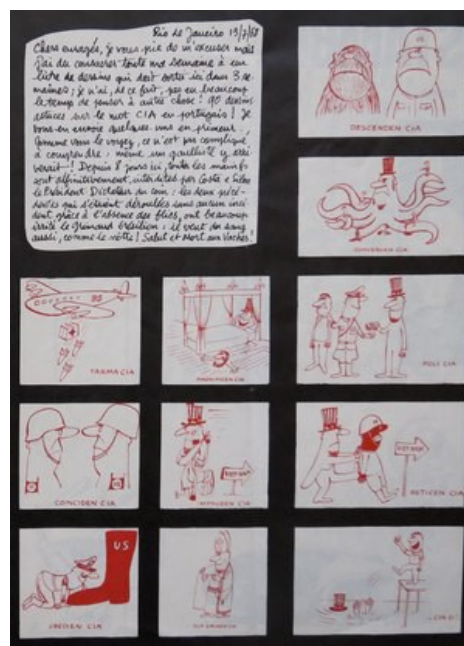 Rio de Janeiro 19/7/68
Chers enragés, je vous prie de m'excuser mais
j'ai dû consacrer toute ma semaine à un
livre de dessins qui doit sortir ici dans 3 se-
maines; je n'ai, de ce fait, pas eu beaucoup
le temps de penser à autre chose! 90 dessins
sur le mot CIA en portugais! Je
vous en envoie quelques-uns en primeur.
Comme vous le voyez, ce n'est pas compliqué
à comprendre; même un gaulliste y arri-
verait! Depuis 8 jours ici, toutes les manifs
sont définitivement interdites par Costa e Silva
le Président Dictateur du coin; les deux précé-
dentes qui s'étaient déroulées sans aucun inci-
dent grâce à l'absence des flics, ont beaucoup
irrité le brésilien; il veut du sang
aussi, comme le nôtre! Salut et Mort aux Vaches!
DESCENDEN CIA
CONVIVEN CIA
FARMA CIA
MAGNIFICEN CIA
POLI CIA
COINCIDEN CIA
IMPRUDEN CIA
VIET-NAM
RETICEN CIA
VIET-NAM
US
OBEDIEN CIA
CIA O!